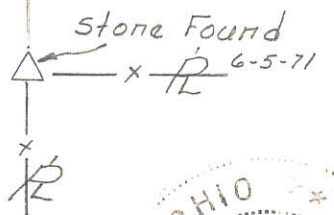 Stone Found
x PL 6-5-71
x
PL
OHIO